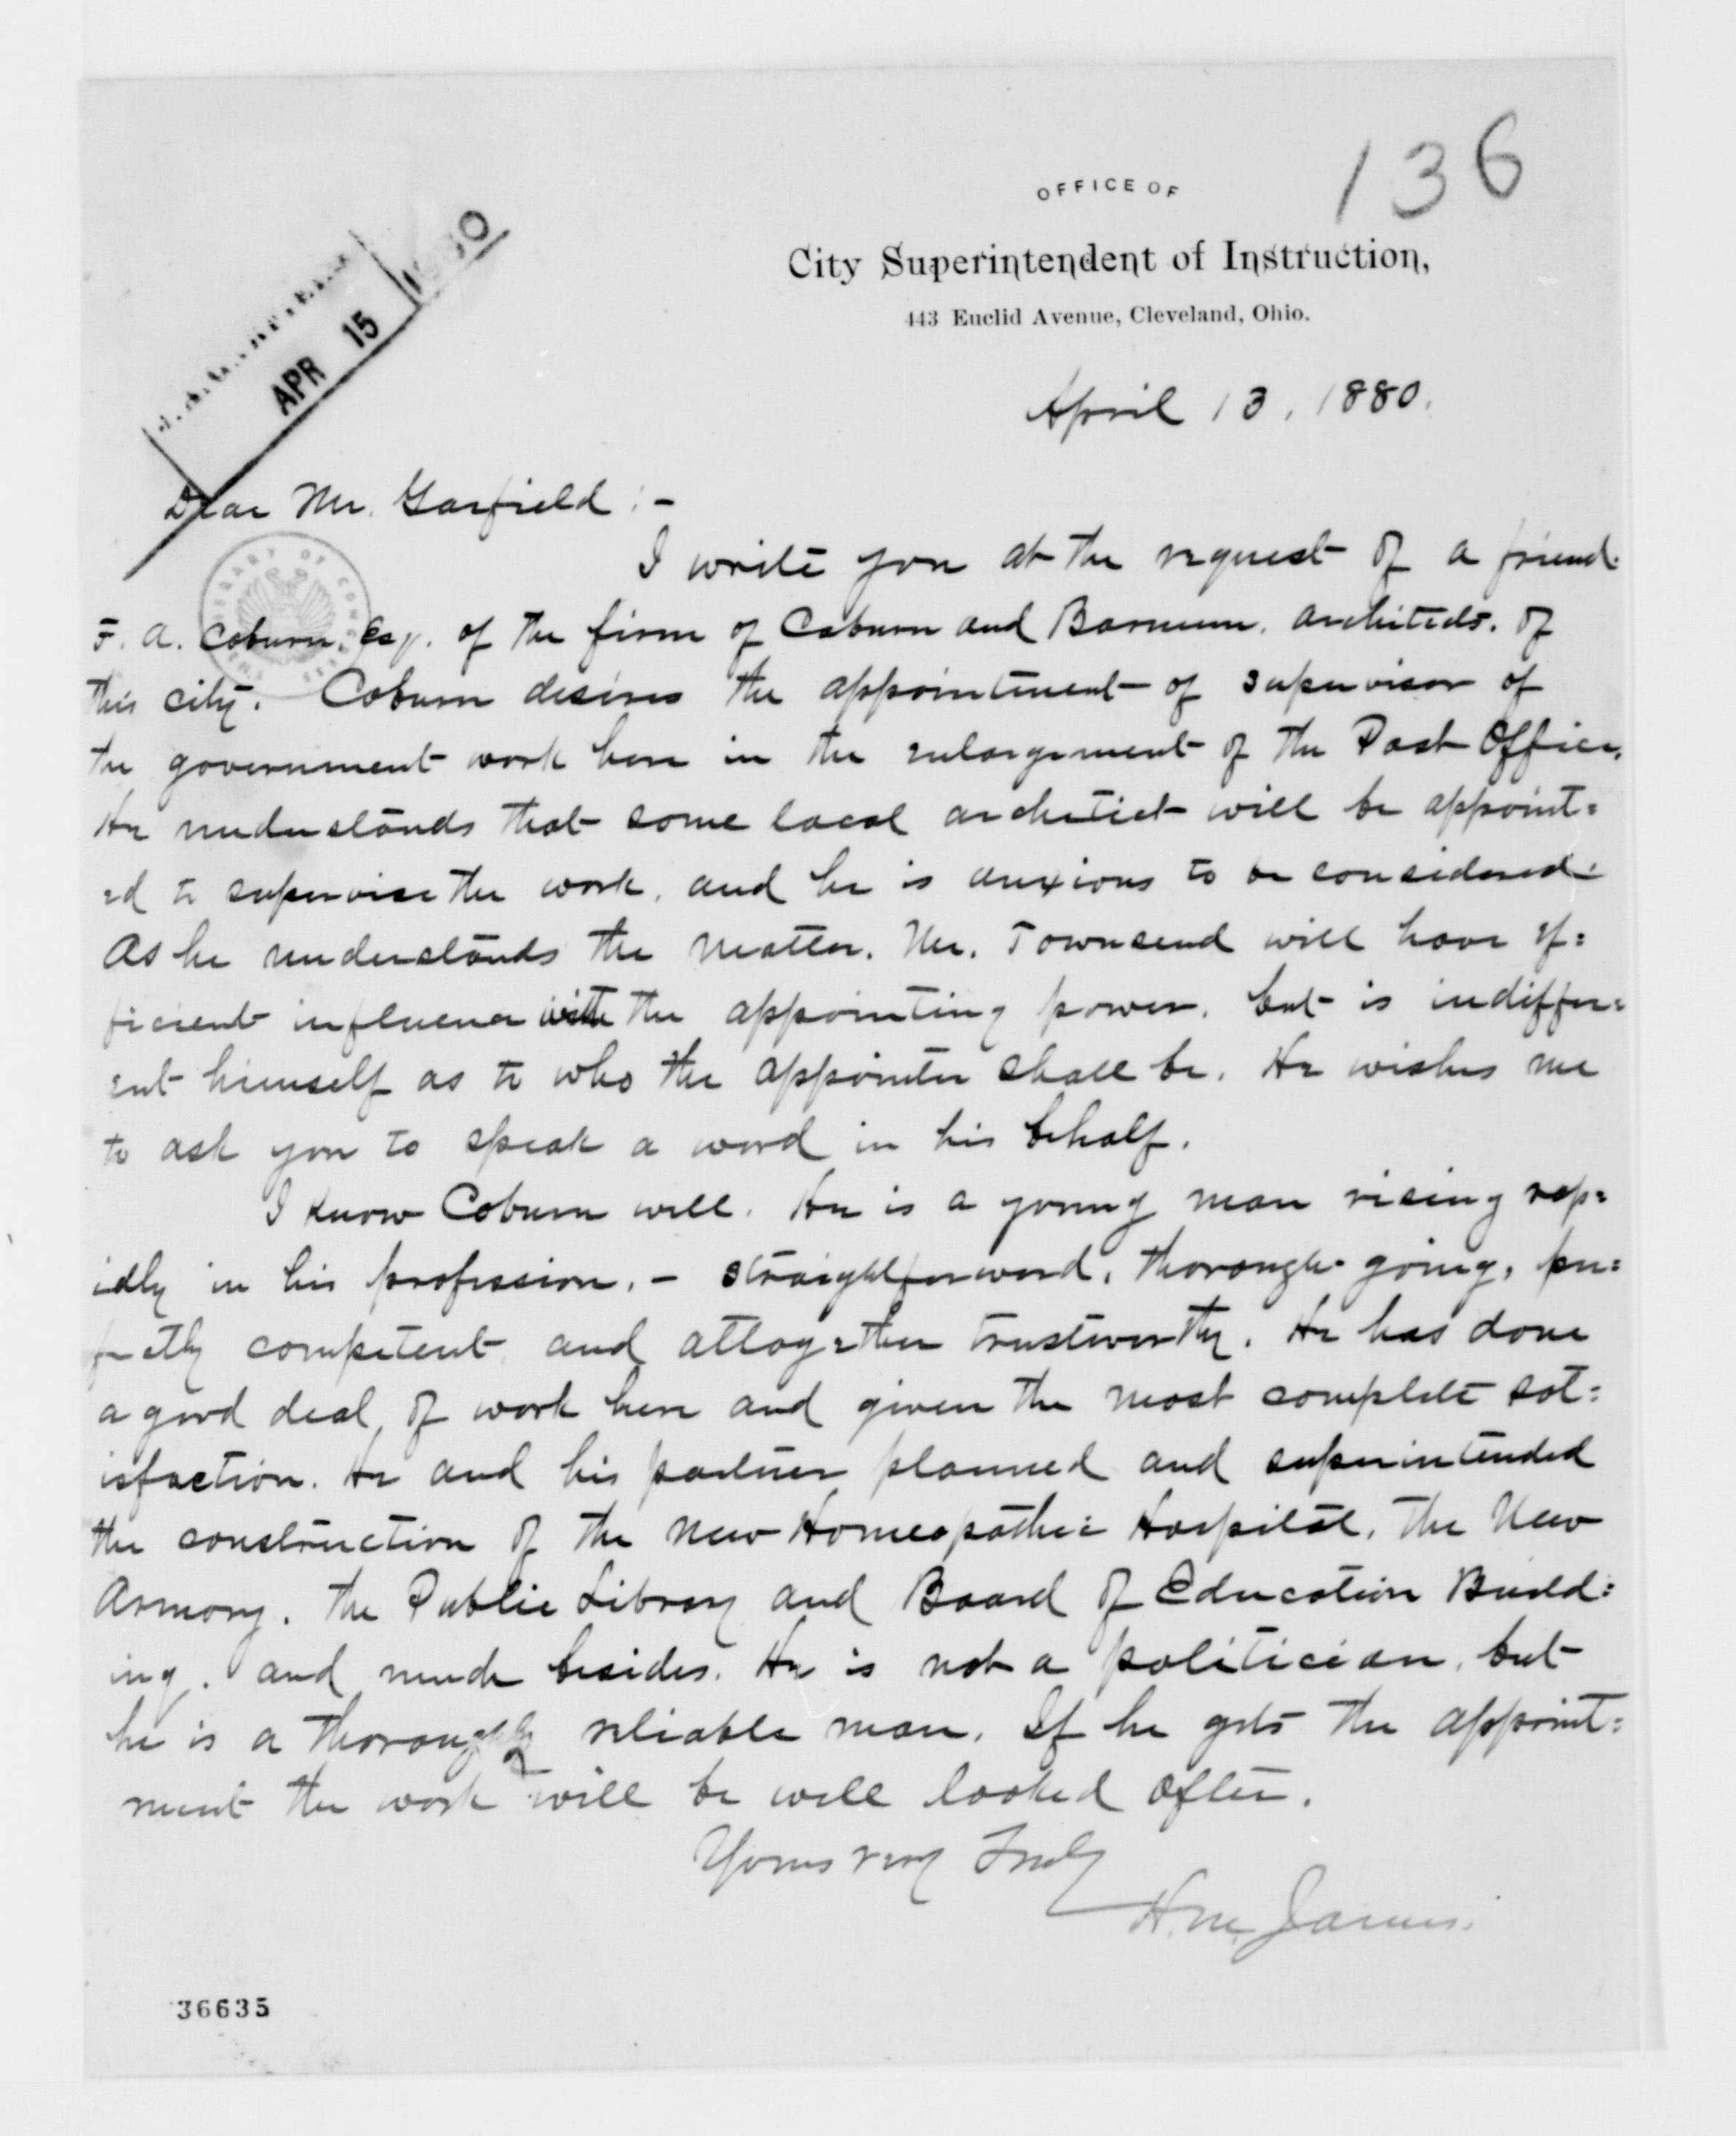 136
OFFICE OF
City Superintendent of Instruction,
443 Euclid Avenue, Cleveland, Ohio.
APR 15 1880
April 13, 1880.
Dear Mr. Garfield :-
LIBRARY OF CONGRESS
I write you at the request of a friend.
F. A. Coburn, Esq. of the firm of Coburn and Barnum, architects, of
this city. Coburn desires the appointment of supervisor of
the government work here in the enlargement of the Post Office.
He understands that some local architect will be appoint=
ed to supervise the work, and he is anxious to be considered.
As he understands the matter, Mr. Townsend will have ef=
ficient influence with the appointing power, but is indiffer=
ent himself as to who the appointee shall be. He wishes me
to ask you to speak a word in his behalf.
I know Coburn well. He is a young man rising rap=
idly in his profession, - straightforward, thorough-going, per=
fectly competent and altogether trustworthy. He has done
a good deal of work here and given the most complete sat=
isfaction. He and his partner planned and superintended
the construction of the New Homeopathic Hospital, the New
Armory, the Public Library and Board of Education Build=
ing, and much besides. He is not a politician, but
he is a thoroughly reliable man. If he gets the appoint=
ment the work will be well looked after.
Yours very Truly
H. M. James.
36635